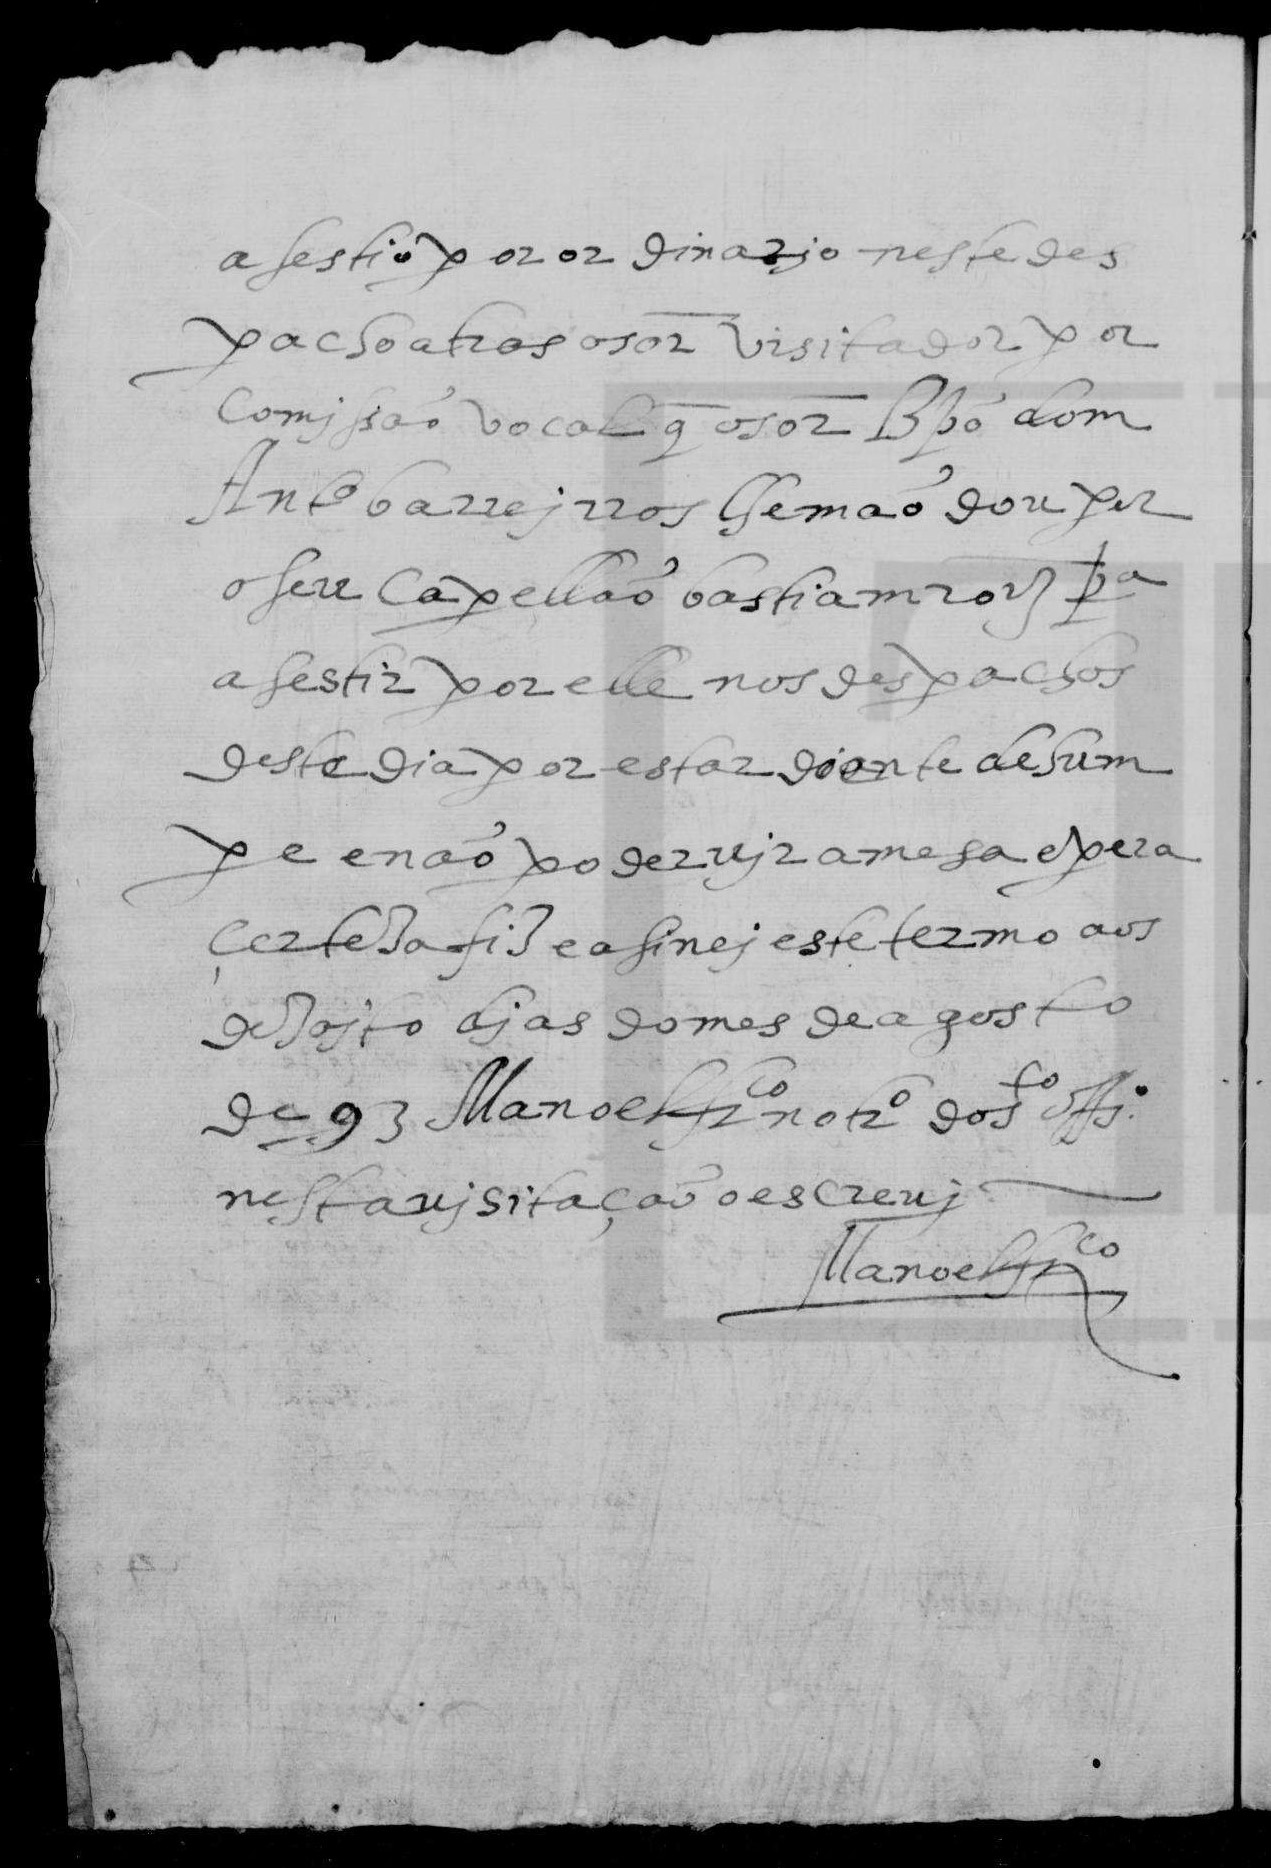 asestio por ordinarjo neste des
pacho atras o sor visitador por
comjssão vocal q̃ o sor Bpõ dom
Antº barrejrros lhe mãdou per
o seu capellão bastiam roiz pª
asestir por elle nos despachos
deste dia por estar doente de hum
pe e não poder vjr a mesa e pera
çerteza fiz e asinej este termo aos
dezojto djas do mes de agosto
de 93 Manoel frco notrº do sto offiº
nesta vjsitação o escrevj
Manoel frco